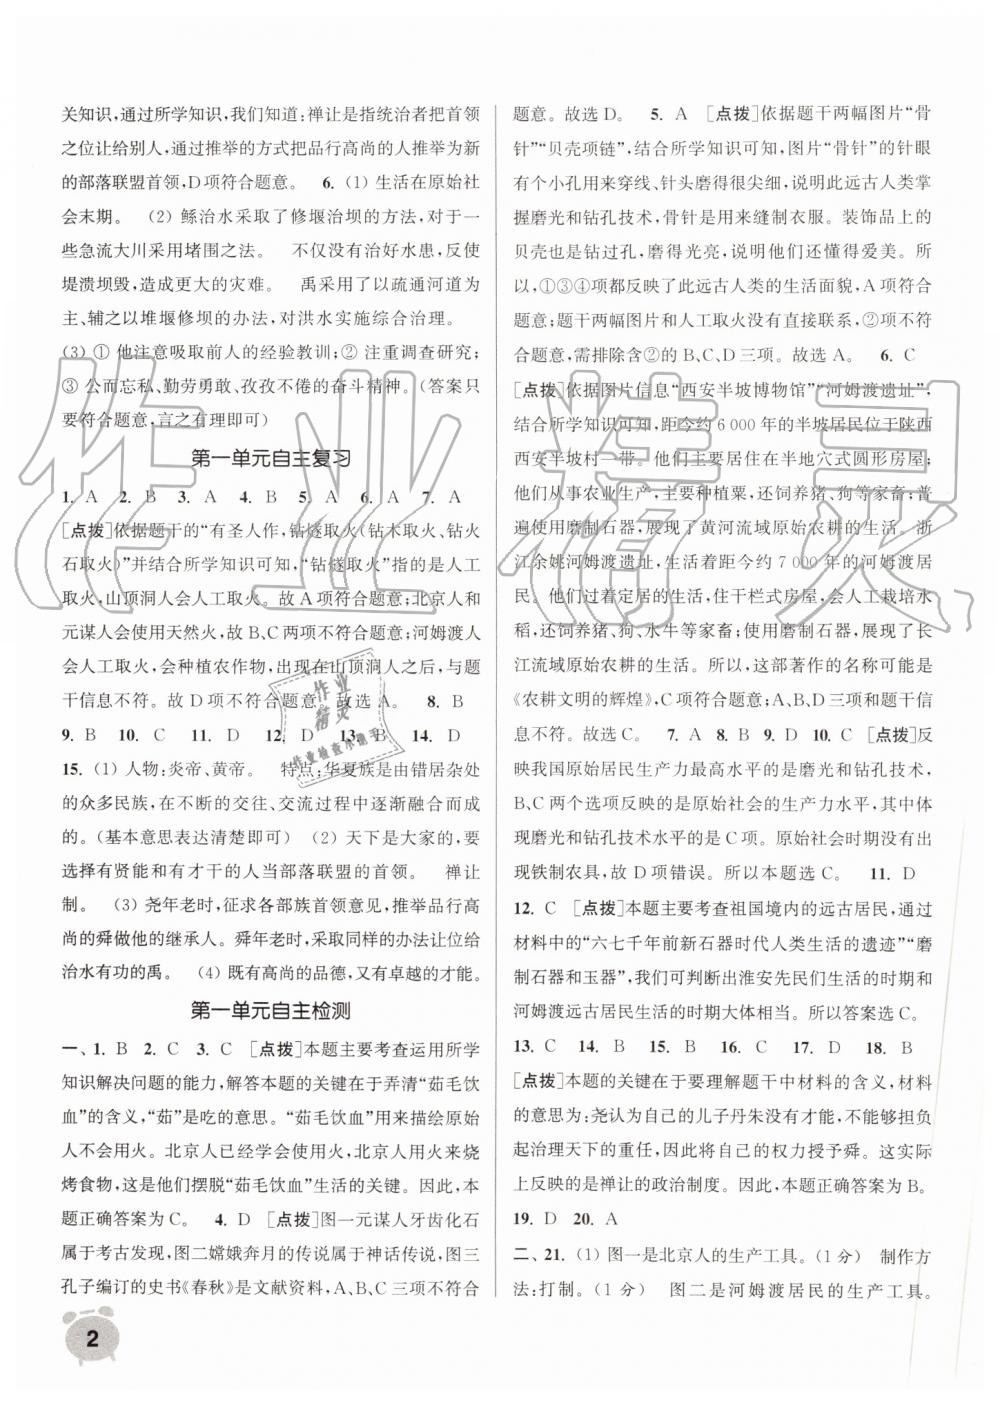 关知识,通过所学知识,我们知道:禅让是指统治者把首领
之位让给别人,通过推举的方式把品行高尚的人推举为新
的部落联盟首领,D项符合题意。 6. (1) 生活在原始社
会末期。 (2) 鲧治水采取了修堰治坝的方法,对于一
些急流大川采用堵围之法。 不仅没有治好水患,反而使
堤溃坝毁,造成更大的灾难。 禹采用了以疏通河道为
主、辅之以堆堰修坝的办法,对洪水实施综合治理。
(3) ① 他注意吸取前人的经验教训;② 注重调查研究;
③ 公而忘私、勤劳勇敢、孜孜不倦的奋斗精神。(答案只
要符合题意,言之有理即可)
第一单元自主复习
1. A 2. B 3. A 4. B 5. A 6. A 7. A
[点拨]依据题干的“有圣人作,钻燧取火(钻木取火、钻火
石取火)”并结合所学知识可知,“钻燧取火”指的是人工
取火,山顶洞人会人工取火。故A项符合题意;北京人和
元谋人会使用天然火,故B、C两项不符合题意;河姆渡人
会人工取火,会种植农作物,出现在山顶洞人之后,与题
干信息不符。故D项不符合题意。故选A。 8. B
9. B 10. C 11. D 12. D 13. B 14. D
15. (1) 人物:炎帝、黄帝。 特点:华夏族是由错居杂处
的众多民族,在不断的交往、交流过程中逐渐融合而成
的。(基本意思表达清楚即可) (2) 天下是大家的,要
选择有贤能和有才干的人当部落联盟的首领。 禅让
制。 (3) 尧年老时,征求各部族首领意见,推举品行高
尚的舜做他的继承人。舜年老时,采取同样的办法让位给
治水有功的禹。 (4) 既有高尚的品德,又有卓越的才能。
第一单元自主检测
一、1. B 2. C 3. C [点拨]本题主要考查运用所学
知识解决问题的能力,解答本题的关键在于弄清“茹毛饮
血”的含义,“茹”是吃的意思。“茹毛饮血”用来描绘原始
人不会用火。北京人已经学会使用火,北京人用火来烧
烤食物,这是他们摆脱“茹毛饮血”生活的关键。因此,本
题正确答案为C。 4. D [点拨]图一元谋人牙齿化石
属于考古发现,图二嫦娥奔月的传说属于神话传说,图三
孔子编订的史书《春秋》是文献资料,A、B、C三项不符合
题意。故选D。 5. A [点拨]依据题干两幅图片“骨
针”“贝壳项链”,结合所学知识可知,图片“骨针”的针眼
有个小孔用来穿线、针头磨得很尖细,说明此远古人类掌
握磨光和钻孔技术,骨针是用来缝制衣服。装饰品上的
贝壳也是钻过孔,磨得光亮,说明他们还懂得爱美。所
以,①③④项都反映了此远古人类的生活面貌,A项符合
题意;题干两幅图片和人工取火没有直接联系,②项不符
合题意,需排除含②的B、C、D三项。故选A。 6. C
[点拨]依据图片信息“西安半坡博物馆”“河姆渡遗址”,
结合所学知识可知,距今约6 000年的半坡居民位于陕西
西安半坡村一带。他们主要居住在半地穴式圆形房屋;
他们从事农业生产,主要种植粟,还饲养猪、狗等家畜;普
遍使用磨制石器,展现了黄河流域原始农耕的生活。浙
江余姚河姆渡遗址,生活着距今约7 000年的河姆渡居
民。他们过着定居的生活,住干栏式房屋,会人工栽培水
稻,还饲养猪、狗、水牛等家畜;使用磨制石器,展现了长
江流域原始农耕的生活。所以,这部著作的名称可能是
《农耕文明的辉煌》,C项符合题意;A、B、D三项和题干信息
不符。故选C。 7. A 8. B 9. D 10. C [点拨]反
映我国原始居民生产力最高水平的是磨光和钻孔技术,
A、B两个选项反映的是原始社会的生产力水平,其中体
现出磨光和钻孔技术水平的是C项。原始社会时期没有出
现铁制农具,故D项错误。所以本题选C。 11. D
12. C [点拨]本题主要考查祖国境内的远古居民,通过
材料中的“六七千年前新石器时代人类生活的遗迹”“磨
制石器和玉器”,我们可判断出淮安先民们生活的时期和
河姆渡远古居民生活的时期大体相当。所以答案选C。
13. C 14. B 15. B 16. C 17. D 18. B
[点拨]本题的关键在于要理解题干中材料的含义,材料
的意思为:尧认为自己的儿子丹朱没有才能,不能够担负
起治理天下的重任,于是将自己的权力授予舜。这实际
上反映的是禅让的政治制度。因此,本题正确答案为B。
19. D 20. A
二、21. (1) 图一是北京人的生产工具。(1分) 制作方
法:打制。(1分) 图二是河姆渡居民的生产工具。
2
作业精灵
作业
精灵
作业检查小能手